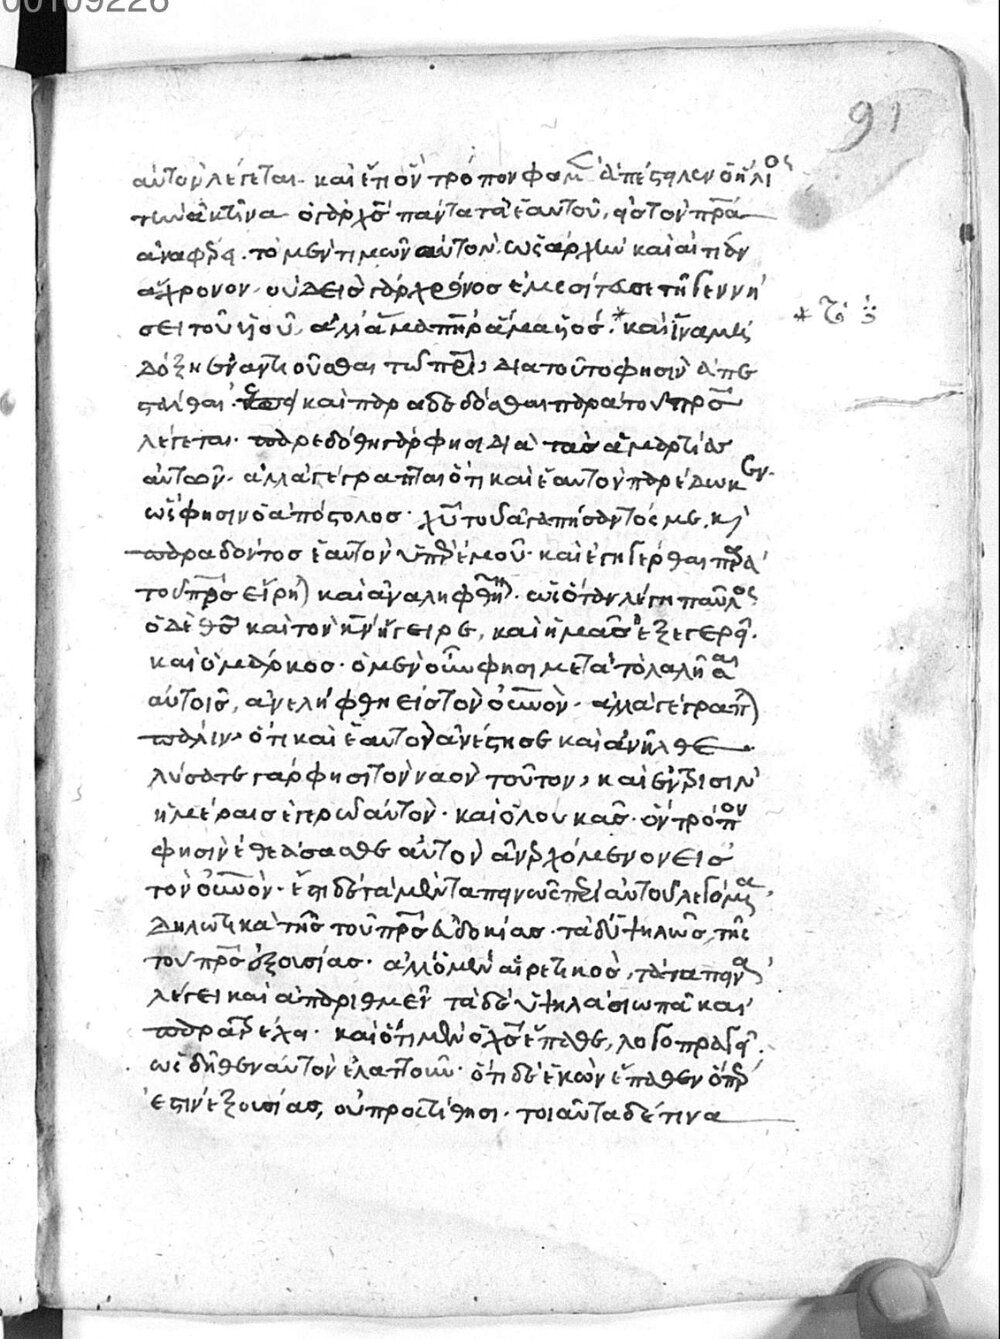 00109226
91
αὐτὸν λέγεται. καὶ ἔτι ὃν τρόπον φαμὲν ἀπέστειλεν ὁ ἥλιος
τὴν ἀκτῖνα ὁ γὰρ χς πάντα τὰ ἑαυτοῦ, εἰς τὸν πρα
ἀναφέρει. τὸ μὲν τιμῶν αὐτὸν, ὡς ἀρχὴν καὶ αἰτίαν
ἄχρονον. οὐδεὶς γὰρ χρόνος ἐμεσίτευσε τῆ γεννή
σει τοῦ υἱοῦ, ἀλλ' ἅμα πηρ ἅμα υἱός. * καὶ ἵνα μὴ
δόξη ἐναντιοῦσθαι τῶ πρι, διὰ τοῦτο φησὶν ἀπε
στάλθαι. καὶ παραδεδόσθαι παρὰ τοῦ πρς
λέγεται. παρεδόθη γάρ φησι διὰ τὰς ἁμαρτίας
αὐτῶν. ἀλλὰ γέγραπται ὅτι καὶ ἑαυτὸν παρέδωκεν.
ὥς φησιν ὁ ἀπόστολος. χυ τοῦ ἀγαπήσαντός με, καὶ
παραδόντος ἑαυτὸν ὑπὲρ ἐμοῦ. καὶ ἐγηγέρθαι παρὰ
τοῦ πρς εἴρηται καὶ ἀναληφθῆναι. ὡς ὅταν λέγη παῦλος
ὁ δὲ θς καὶ τὸν κν ἤγειρε, καὶ ἡμᾶς ἐξεγερεῖ.
καὶ ὁ μάρκος. ὁ μὲν οὖν φησι μετὰ τὸ λαλῆσαι
αὐτοῖς, ἀνελήφθη εἰς τὸν οὐνον. ἀλλὰ γέγραπται
πάλιν, ὅτι καὶ ἑαυτὸν ἀνέστησε καὶ ἀνῆλθε
λύσατε γάρ φησι τὸν ναὸν τοῦτον, καὶ ἐν τρισὶν
ἡμέραις ἐγερῶ αὐτόν. καὶ ὁ λουκᾶς. ὃν τρόπον
φησὶν ἐθεάσασθε αὐτὸν ἀνερχόμενον εἰς
τὸν οὐνον. ἔστι δὲ τὰ μὲν ταπεινῶς περὶ αὐτοῦ λεγόμενα,
δηλωτικὰ τῆς τοῦ πρς εὐδοκίας. τὰ δ' ὑψηλῶς, τῆς
τοῦ πρς ἐξουσίας. ἀλλ' ὁ μὲν αἱρετικὸς, τὰ ταπεινὰ
λέγει καὶ ἀπαριθμεῖ τὰ δὲ ὑψηλὰ σιωπᾶ καὶ
παρατρέχει. καὶ ὅτι μὲν ὁ χς ἔπαθε, λογοπραγεῖ.
ὡς δῆθεν αὐτὸν ἐλαττοῦν. ὅτι δὲ ἑκὼν ἔπαθεν ὅπερ
ἐστὶν ἐξουσίας, οὐ προστίθησι. τοιαῦτα δέ τινα